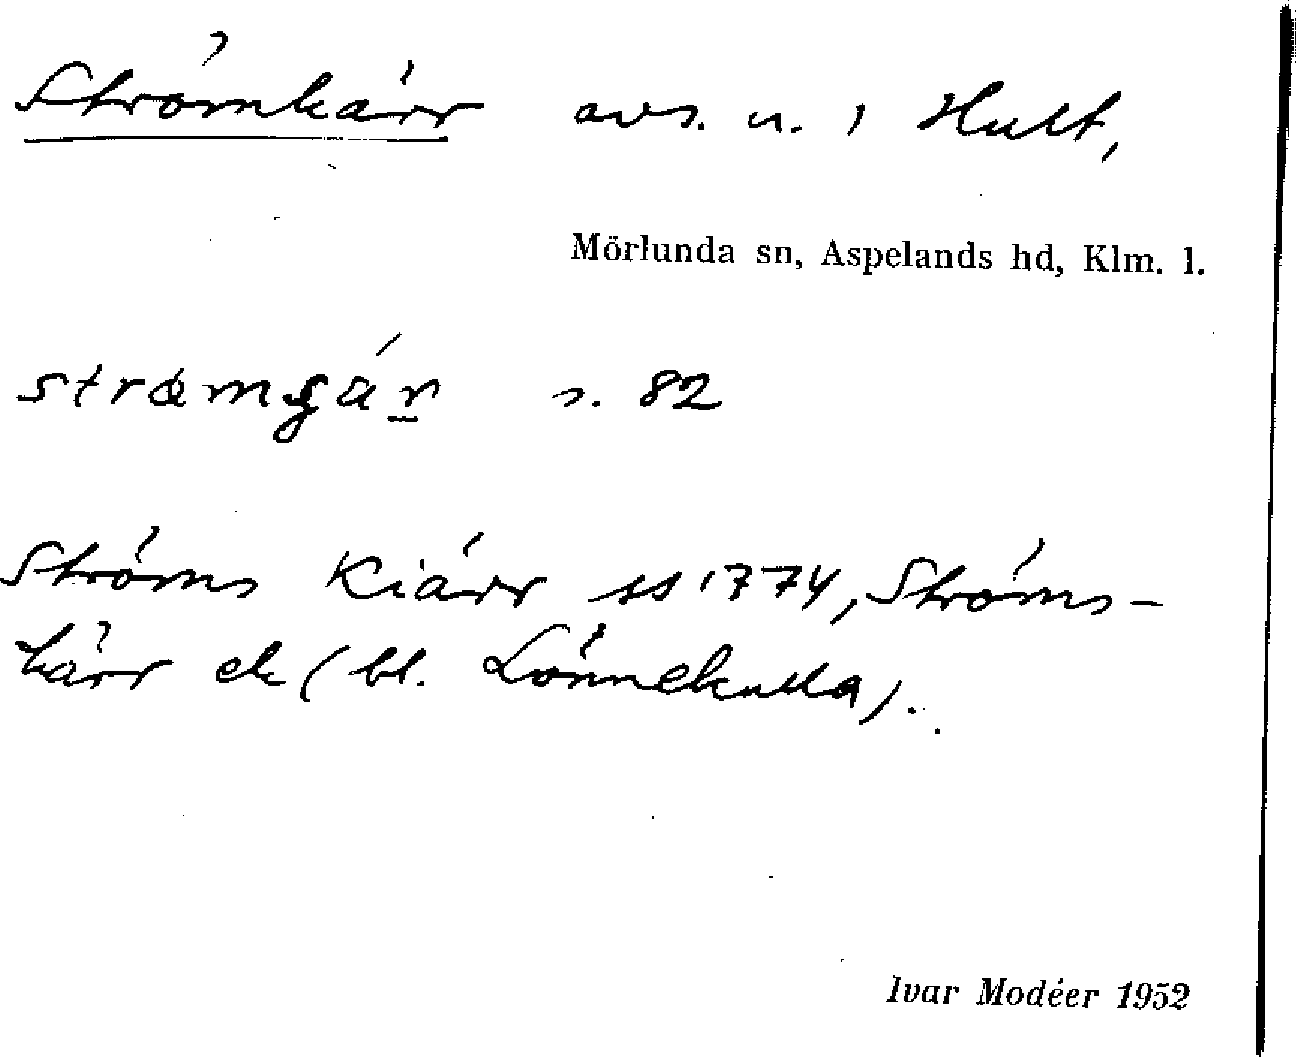 Strömkärr avs. n. i Hult,
Mörlunda sn, Aspelands hd, Klm. l.
s. 82
Ströms Kiärr ss 1774, Ströms-
kärr ek (bl. Lönnekulla).
Ivar Modéer 1952